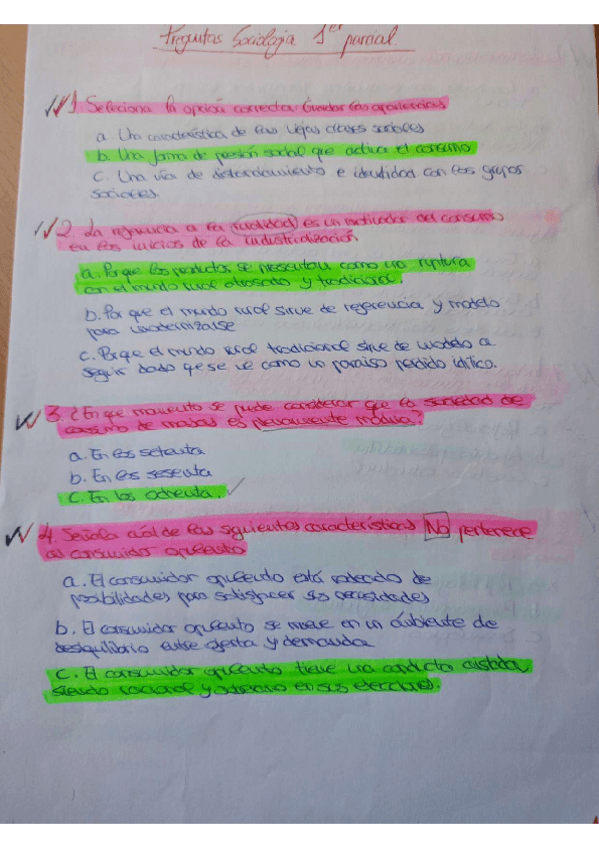 Preguntas Sociología 1er parcial.
1. Seleciona la opción correcta: Guardar las apariencias
a. Una característica de las viejas clases sociales
b. Una forma de presión social que activa el consumo
c. Una vía de distanciamiento e identidad con los grupos
sociales.
2. La referencia a la ruralidad es un motivador del consumo
en los inicios de la industrialización
a. Porque los productos se presentan como una ruptura
con el mundo rural atrasado y tradicional.
b. Por que el mundo rural sirve de referencia y modelo
para modernizarse
c. Porque el mundo rural tradicional sirve de modelo a
seguir dado que se ve como un paraiso perdido idílico.
3. ¿En que momento se puede considerar que la sociedad de
consumo de masas es plenamente madura?
a. En los setenta
b. En los sesenta
c. En los ochenta.
4. Señala cuál de las siguientes características No pertenece
al consumidor opulento
a. El consumidor opulento está rodeado de
posibilidades para satisfacer sus necesidades
b. El consumidor opulento se mueve en un ambiente de
desequilibrio entre oferta y demanda
c. El consumidor opulento tiene una conducta aislada,
siendo racional y soberano en sus elecciones.